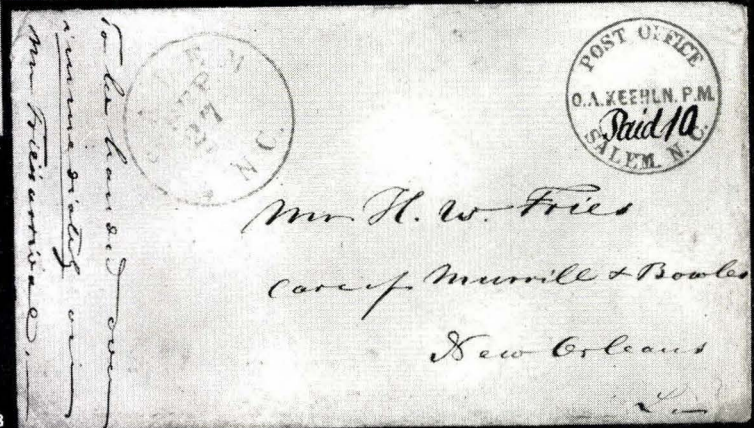 To be handed over
immediately on
Mr Fries arrival.
SALEM
SEP
27
N C.
POST OFFICE
O.A.KEEHLN. P.M.
Paid 10
SALEM. N. C.
Mr H. W. Fries
Care of Murrill & Bowles
New Orleans
La